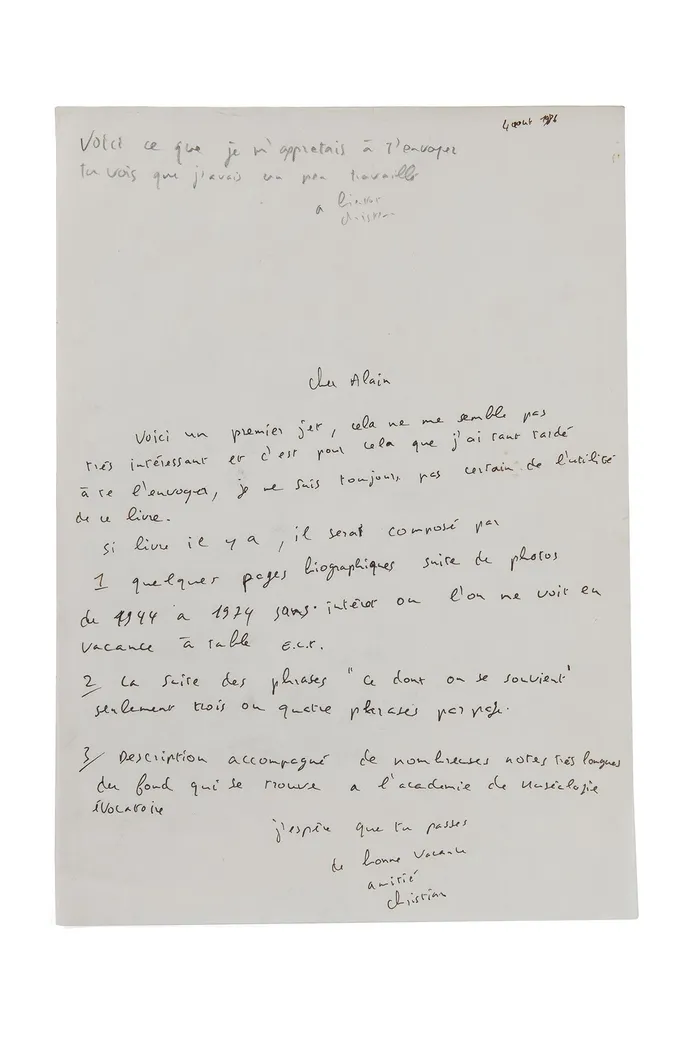 4 aout 1976
Voici ce que je m'appretais à t'envoyer
tu vois que j'avais un peu travaillé
a bientot
christian
cher Alain
Voici un premier jet, cela ne me semble pas
très intéressant et c'est pour cela que j'ai tant tardé
à te l'envoyer, je ne suis toujours pas certain de l'utilité
de ce livre.
si livre il y a, il serat composé par
1 quelques pages biographiques suite de photos
de 1944 a 1974 sans intéret ou l'on me voit en
vacance à table E.C.T.
2/ La suite des phrases "ce dont on se souvient"
seulement trois ou quatre phrases par page.
3/ Description accompagné de nombreuses notes très longues
du fond qui se trouve a l'academie de Muséologie
évocatoire
j'espère que tu passes
de bonne vacance
amitié
christian